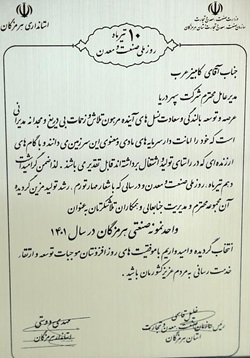 استانداری هرمزگان
۱۰ تیرماه
روز ملی صنعت و معدن
جناب آقای کامبیز عرب
مدیرعامل محترم شرکت سپر دریا
عرصه و توسعه بالندگی و سعادت نسل‌های آینده مرهون تلاش و زحمات بی‌دریغ و مجدانه مدیرانی
است که خود را امانت‌دار سرمایه‌های مادی و معنوی این سرزمین می‌دانند و با گام‌های
ارزنده‌ای که در راستای تولید و اشتغال برداشته‌اند قابل تقدیر می‌باشند. لذا ضمن گرامیداشت
دهم تیرماه، روز ملی صنعت و معدن و در سالی که با شعار مهار تورم، رشد تولید مزین گردیده
آن مجموعه محترم و مدیریت جنابعالی و همکاران تلاشگرتان به عنوان
واحد نمونه صنعتی هرمزگان در سال ۱۴۰۱
انتخاب گردیده و امیدواریم با موفقیت‌های روز افزونتان موجبات توسعه و ارتقاء
خدمت رسانی به مردم عزیز کشورمان باشید.
خلیل قاسمی
استان هرمزگان
مهدی دوستی
استاندار هرمزگان